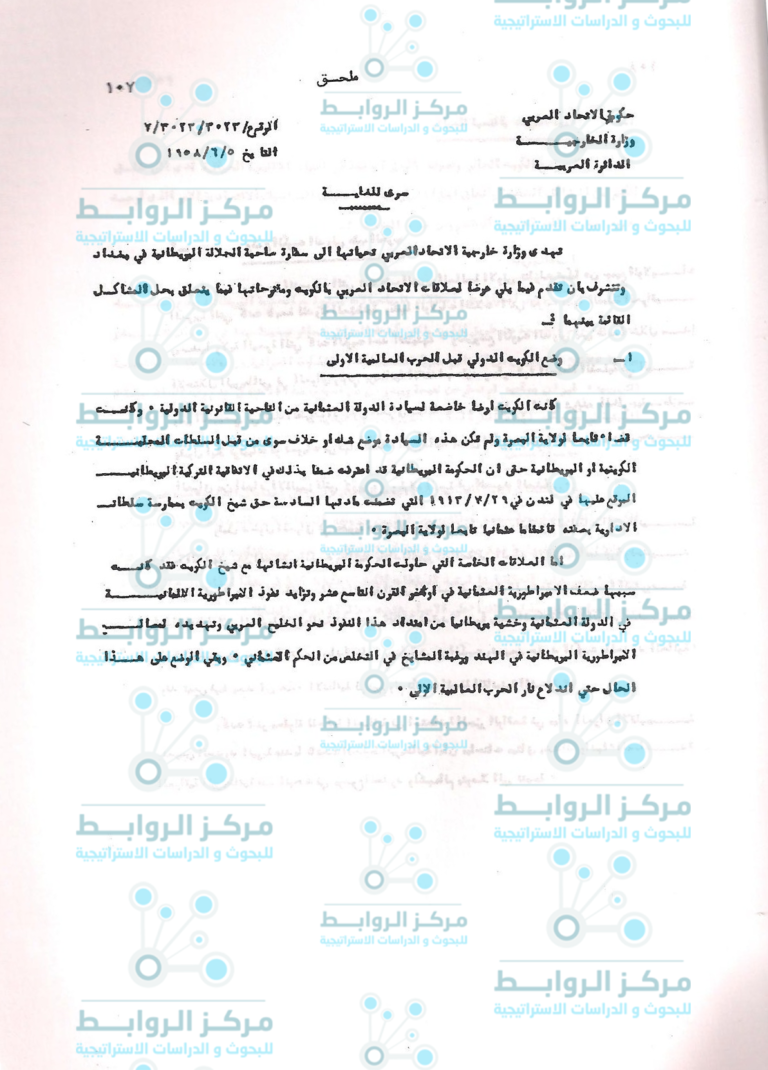 ١٠٧
ملحق
حكومة الاتحاد العربي
وزارة الخارجيـــــــة
الدائرة العربيـــة
الرقم ع/٣٠٢٣/٣٠٢٣/٧
التاريخ ١٩٥٨/٦/٥
سرى للغايـــــة
تهدى وزارة خارجية الاتحاد العربي تحياتها الى سفارة صاحبة الجلالة البريطانية في بغداد
وتتشرف بان تقدم فيما يلي عرضا لعلاقات الاتحاد العربي بالكويت ومقترحاتها فيما يتعلق بحل المشاكـــل
القائمة بينهما :ـ
١ ــ وضع الكويت الدولي قبل الحرب العالمية الاولى
كانت الكويت ارضا خاضعة لسيادة الدولة العثمانية من الناحية القانونية الدولية ٠ وكانـــت
قضاء تابعا لولاية البصرة ولم تكن هذه السيادة موضع شك او خلاف سوى من قبل السلطات المحليـــــة
الكويتية او البريطانية حتى ان الحكومة البريطانية قد اعترفت ضمنا بذلك في الاتفاقية التركية البريطانيـــــة
الموقع عليها في لندن في ١٩١٣/٧/٢٩ التي تضمنت مادتها السادسة حق شيخ الكويت بممارسة سلطاتـــه
الادارية بصفته قائمقاما عثمانيا تابعا لولاية البصرة ٠
اما العلاقات الخاصة التي حاولت الحكومة البريطانية انشائها مع شيخ الكويت فقد كانـــت
سببها ضعف الامبراطورية العثمانية في اواخر القرن التاسع عشر وتزايد نفوذ الامبراطورية الالمانيــــــــة
في الدولة العثمانية وخشية بريطانيا من امتداد هذا النفوذ نحو الخليج العربي وتهديده لمصالـــــح
الامبراطورية البريطانية في الهند ورغبة المشايخ في التخلص من الحكم العثماني ٠ وبقي الوضع على هـــــذا
الحال حتى اندلاع نار الحرب العالمية الاولى ٠
مركز الروابــط
للبحوث و الدراسات الاستراتيجية